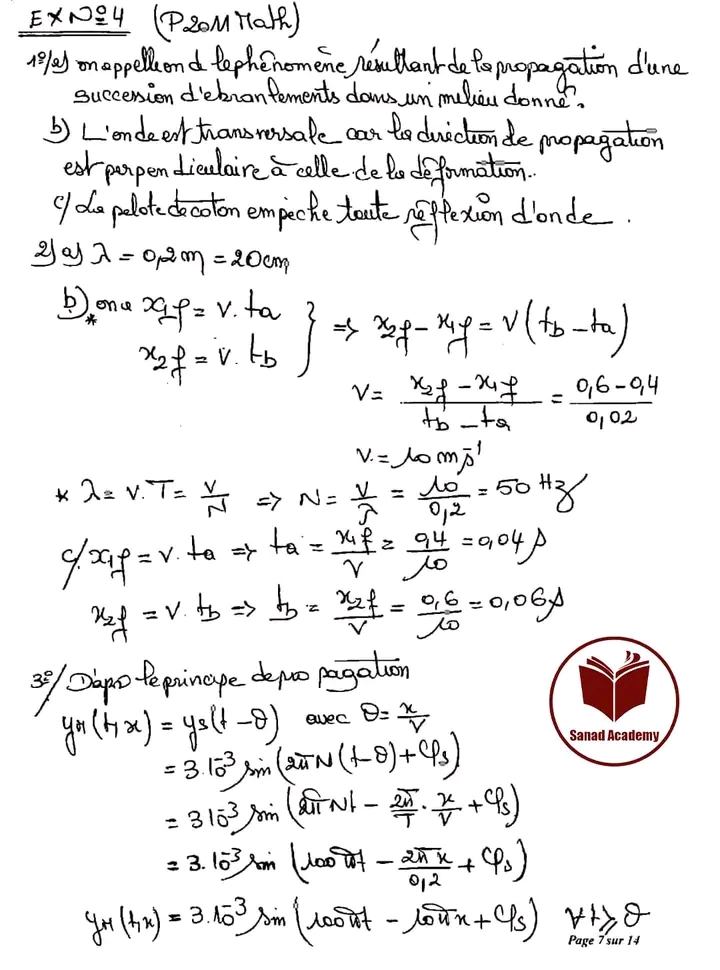 EXNº4 (P20M Math)
1º/a) on appelle on d le phénomène résultant de la propagation d'une
succession d'ebranlements dans un milieu donné.
b) L'onde est transversale car la direction de propagation
est perpendiculaire à celle de la déformation.
c/ La pelote de coton empêche toute réflexion d'onde.
2) a) λ = 0,2m = 20cm
b) * on a x₁f = v.ta
x₂f = v.tb } => x₂f - x₁f = V(tb - ta)
V = (x₂f - x₁f)/(tb - ta) = (0,6 - 0,4)/0,02
V = 10 m s⁻¹
* λ = v.T = V/N => N = V/λ = 10/0,2 = 50 Hz
c/ x₁f = v.ta => ta = x₁f/V = 0,4/10 = 0,04 s
x₂f = v.tb => tb = x₂f/V = 0,6/10 = 0,06 s
3º/ D'après le principe de propagation
yM(t,x) = ys(t - θ) avec θ = x/V
= 3.10⁻³ sin(2πN(t - θ) + φs)
= 3 10⁻³ sin(2πNt - 2π/T . x/V + φs)
= 3.10⁻³ sin(100πt - 2πx/0,2 + φs)
yM(t,x) = 3.10⁻³ sin(100πt - 10πx + φs) ∀t ≥ θ
Sanad Academy
Page 7 sur 14